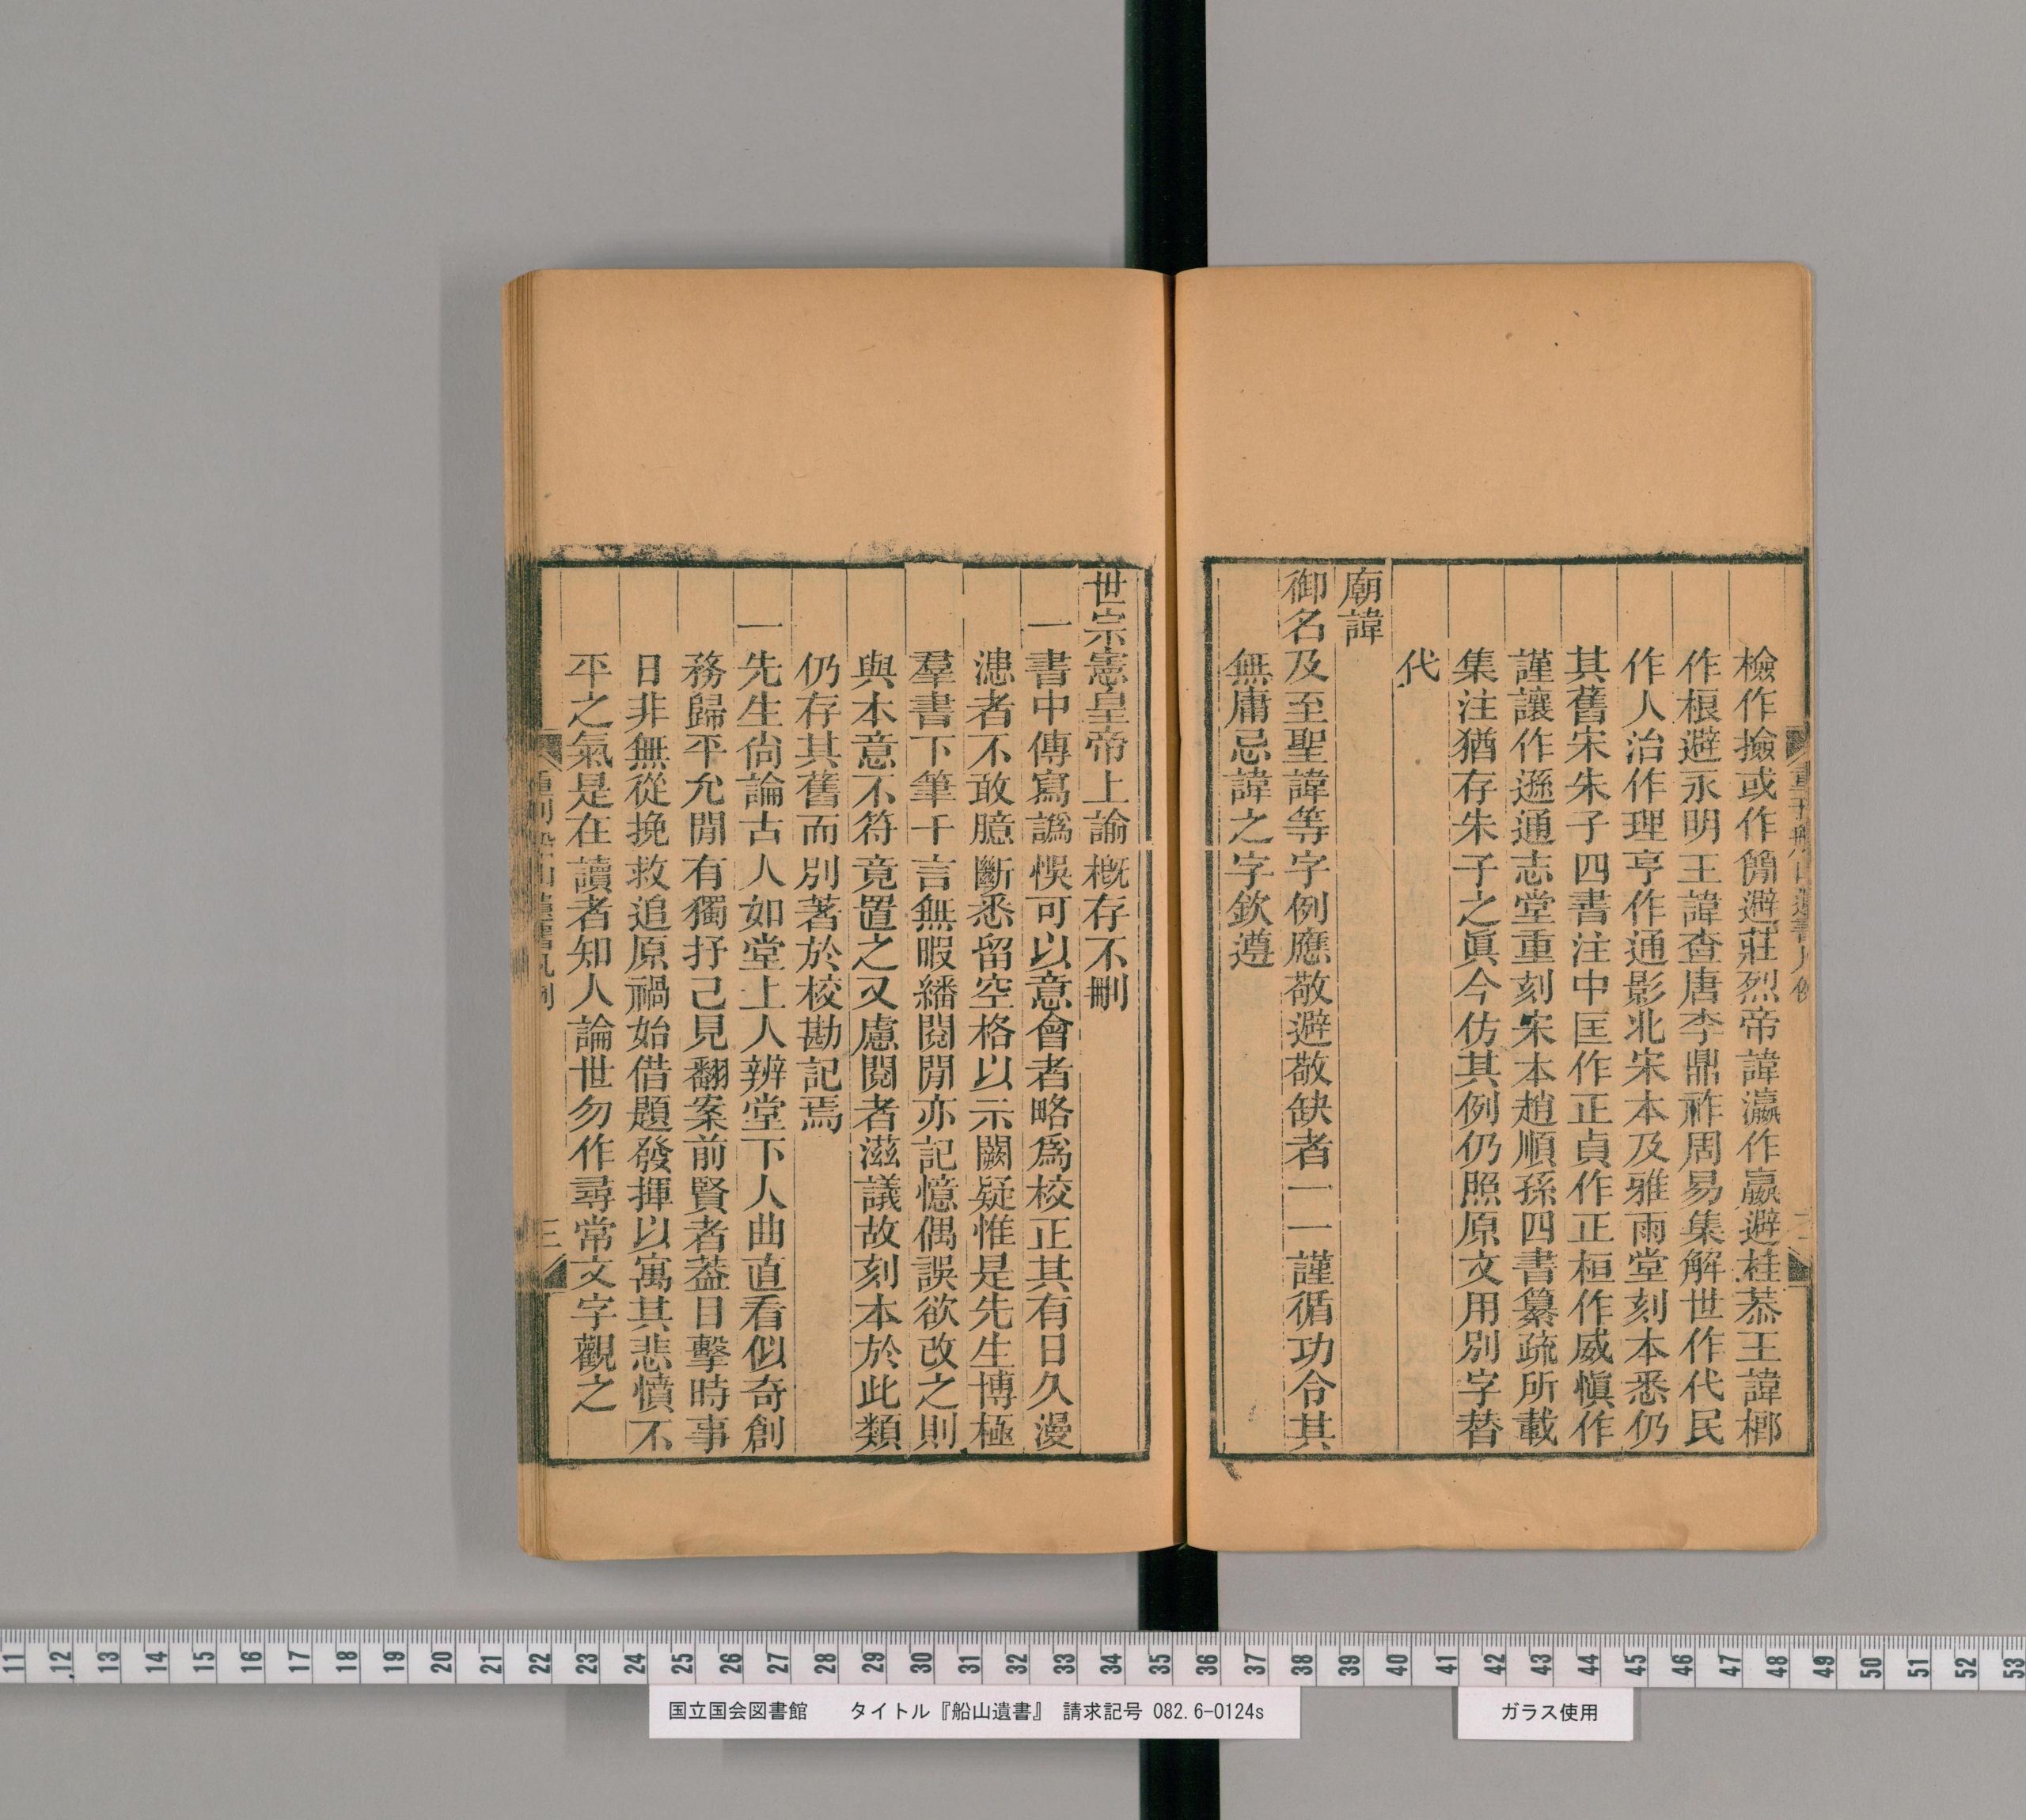 檢作撿或作簡避莊烈帝諱瀛作嬴避桂恭王諱榔
作根避永明王諱查唐李鼎祚周易集解世作代民
作人治作理亨作通影北宋本及雅雨堂刻本悉仍
其舊宋朱子四書注中匡作正貞作正桓作威愼作
謹讓作遜通志堂重刻宋本趙順孫四書纂疏所載
集注猶存朱子之眞今仿其例仍照原文用別字替
代
廟諱
御名及至聖諱等字例應敬避敬缺者一一謹循功令其
無庸忌諱之字欽遵
世宗憲皇帝上諭槪存不刪
一書中傳寫譌悞可以意會者略爲校正其有日久漫
漶者不敢臆斷悉留空格以示闕疑惟是先生博極
羣書下筆千言無暇繙閱閒亦記憶偶誤欲改之則
與本意不符竟置之又慮閱者滋議故刻本於此類
仍存其舊而別著於校勘記焉
一先生尙論古人如堂上人辨堂下人曲直看似奇創
務歸平允閒有獨抒己見翻案前賢者葢日擊時事
日非無從挽救追原禍始借題發揮以寓其悲憤不
平之氣是在讀者知人論世勿作尋常文字觀之
重刊船山遺書凡例
三
11 12 13 14 15 16 17 18 19 20 21 22 23 24 25 26 27 28 29 30 31 32 33 34 35 36 37 38 39 40 41 42 43 44 45 46 47 48 49 50 51 52 53
国立国会図書館 タイトル『船山遺書』 請求記号 082.6-0124s
ガラス使用